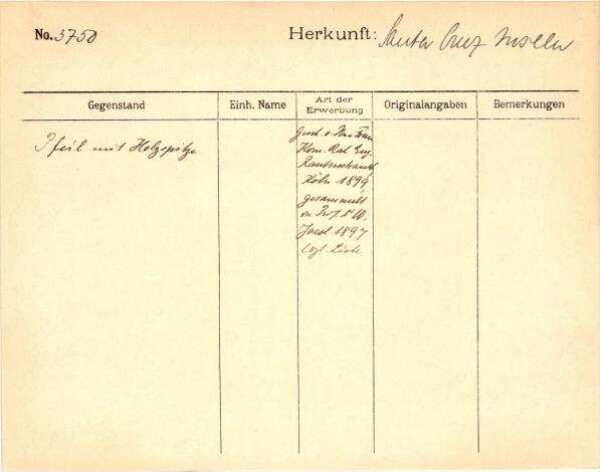 No. 3750
Herkunft: Santa Cruz Inseln
Gegenstand
Einh. Name
Art der
Erwerbung
Originalangaben
Bemerkungen
Pfeil mit Holzspitze
Gesch. v.
Kom. Rat Eug.
Rautenstrauch
Köln 1899,
gesammelt
v. Prof. Dr W.
Joest 1897
vgl. Liste